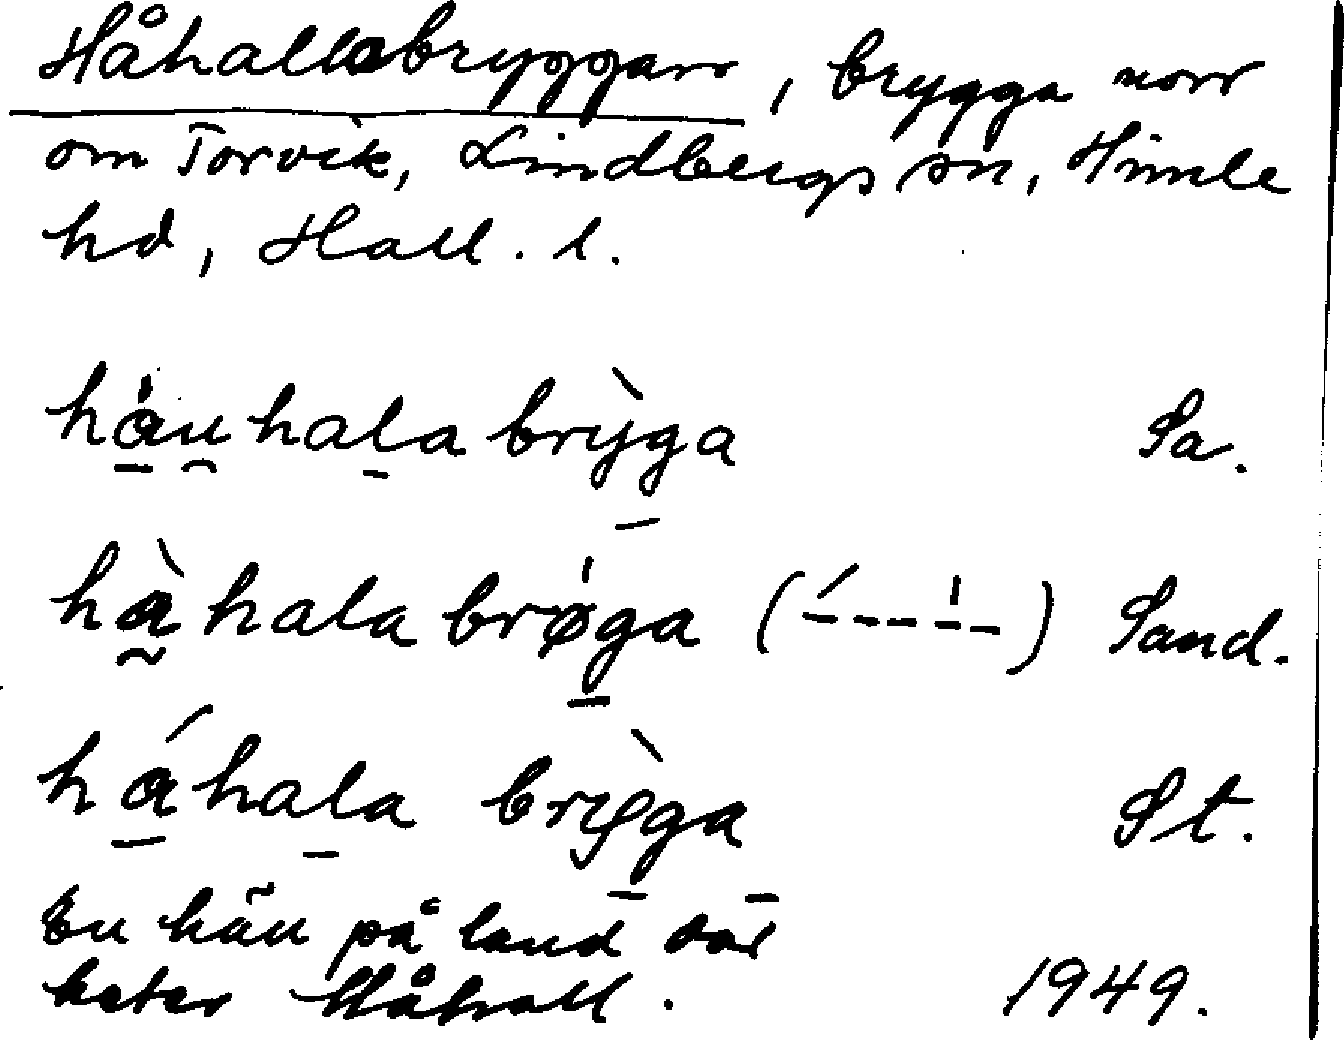 Håhallabryggan, brygga norr
om Torvik, Lindbergs sn, Himle
hd, Hall. l.
hàu̯hala brỳga Sa.
hàhala brøga (-----) Sand.
háhala brỳga St.
En häll på land där
heter Håhall. 1949.